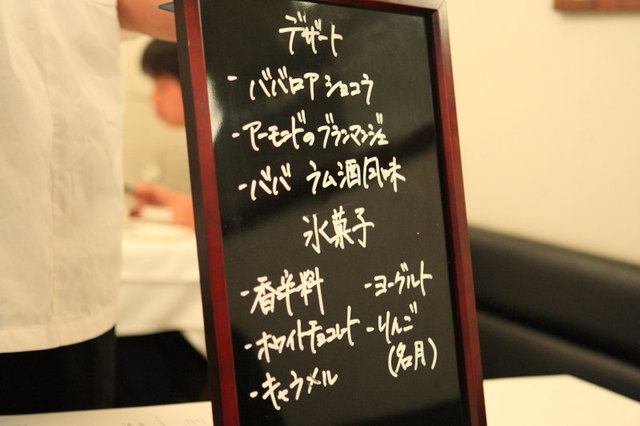 デザート
・ババロアショコラ
・アーモンドのブランマンジェ
・ババ ラム酒風味
氷菓子
・香辛料
・ホワイトチョコレート
・キャラメル
・ヨーグルト
・りんご
(名月)